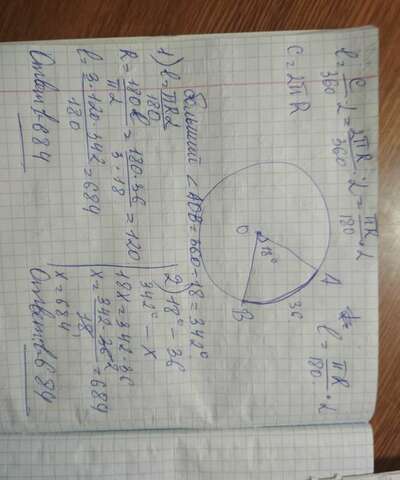 l = C/360 α = 2πR/360 · α = πR/180 · α
l = πR/180 · α
C = 2πR
A
36
18°
O
B
больший ∠AOB = 360 - 18 = 342°
1) l = πRα/180
R = 180 l/πα = 180·36/3·18 = 120
l = 3·120·342/180 = 684
Ответ: 684
2) 18° – 36
342° – x
18x = 342·36
x = 342·36/18 = 684
x = 684
Ответ: 684